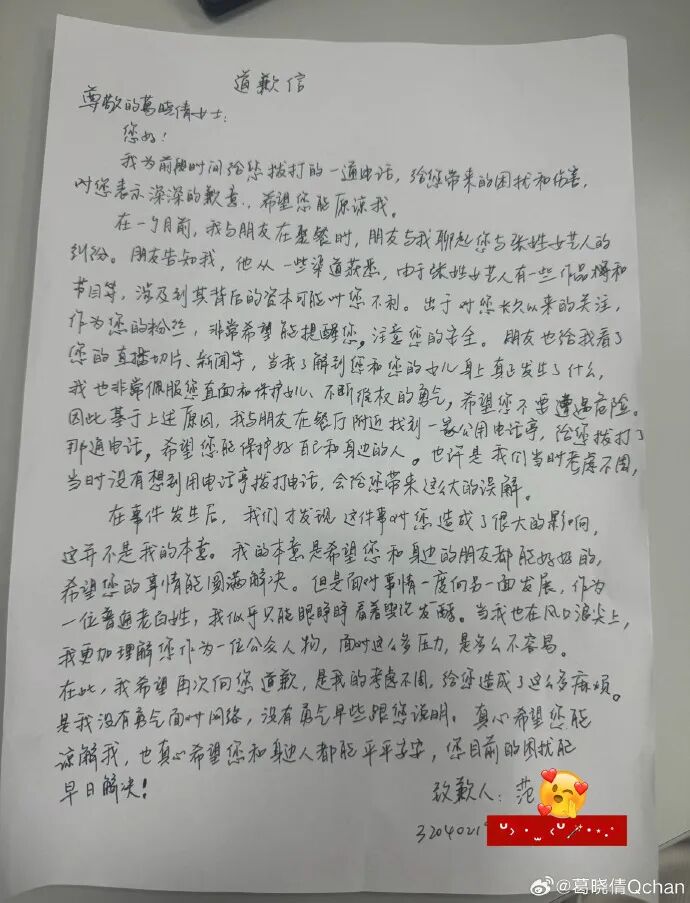 道歉信
尊敬的葛晓倩女士：
您好！
我为前段时间给您拨打的一通电话，给您带来的困扰和伤害，
对您表示深深的歉意，希望您能原谅我。
在一个月前，我与朋友在聚餐时，朋友与我聊起您与张姓女艺人的
纠纷。朋友告知我，他从一些渠道获悉，由于张姓女艺人有一些作品将和
节目等，涉及到其背后的资本可能对您不利。出于对您长久以来的关注，
作为您的粉丝，非常希望能提醒您，注意您的安全。朋友也给我看了
您的直播切片、新闻等，当我了解到您和您的女儿身上真正发生了什么，
我也非常佩服您直面和保护女儿、不断维权的勇气，希望您不要遭遇危险。
因此基于上述原因，我与朋友在餐厅附近找到一家公用电话亭，给您拨打了
那通电话，希望您能保护好自己和身边的人。也许是我们当时考虑不周，
当时没有想到用电话亭拨打电话，会给您带来这么大的误解。
在事件发生后，我们才发现这件事对您造成了很大的影响，
这并不是我的本意。我的本意是希望您和身边的朋友都能好好的，
希望您的事情能圆满解决。但是面对事情一度向另一面发展，作为
一位普通老百姓，我似乎只能眼睁睁看着舆论发酵。当我也在风口浪尖上，
我更加理解您作为一位公众人物，面对这么多压力，是多么不容易。
在此，我希望再次向您道歉，是我的考虑不周，给您造成了这么多麻烦。
是我没有勇气面对网络，没有勇气早些跟您说明。真心希望您能
谅解我，也真心希望您和身边人都能平平安安，您目前的困扰能
早日解决！
致歉人：范
3204021
@葛晓倩Qchan